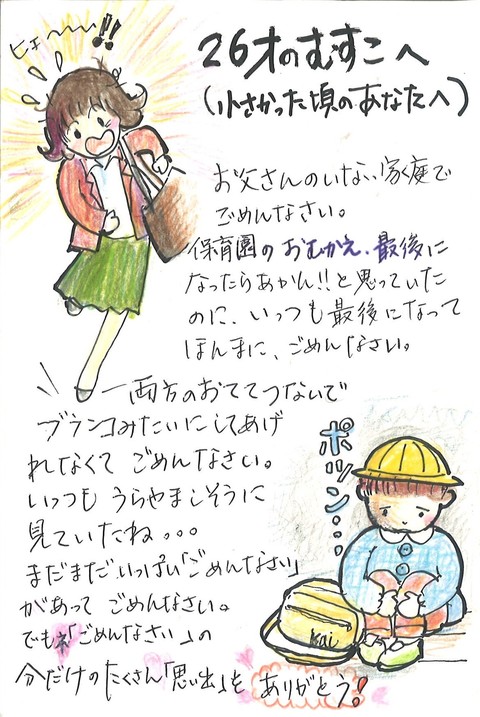 ヒェ〜〜〜!!
26才のむすこへ
(小さかった頃のあなたへ)
お父さんのいない家庭で
ごめんなさい。
保育園のおむかえ、最後に
なったらあかん!!と思っていた
のに、いっつも最後になって
ほんまに、ごめんなさい。
両方のおててつないで
ブランコみたいにしてあげ
れなくてごめんなさい。
いっつもうらやましそうに
見ていたね。。。
まだまだいっぱい「ごめんなさい」
があってごめんなさい。
でもネ「ごめんなさい」の
分だけのたくさん「思い出」をありがとう!
ポツン・・・
Kai